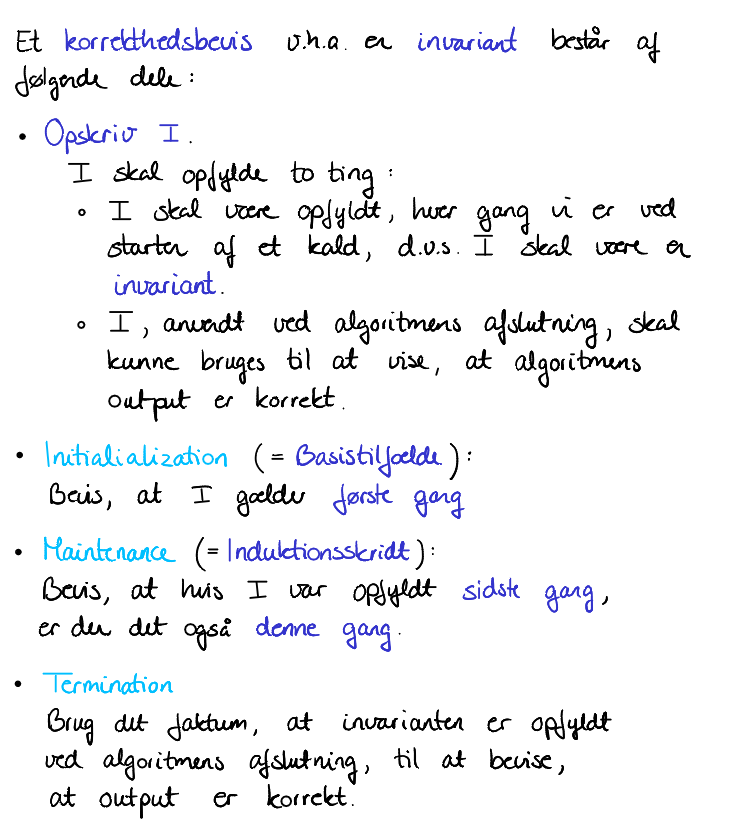 Et korrekthedsbevis v.h.a. en invariant består af
følgende dele:
• Opskriv I.
I skal opfylde to ting:
∘ I skal være opfyldt, hver gang vi er ved
starten af et kald, d.v.s. I skal være en
invariant.
∘ I, anvendt ved algoritmens afslutning, skal
kunne bruges til at vise, at algoritmens
output er korrekt.
• Initialialization (= Basistilfælde):
Bevis, at I gælder første gang
• Maintenance (= Induktionsskridt):
Bevis, at hvis I var opfyldt sidste gang,
er den det også denne gang.
• Termination
Brug det faktum, at invarianten er opfyldt
ved algoritmens afslutning, til at bevise,
at output er korrekt.